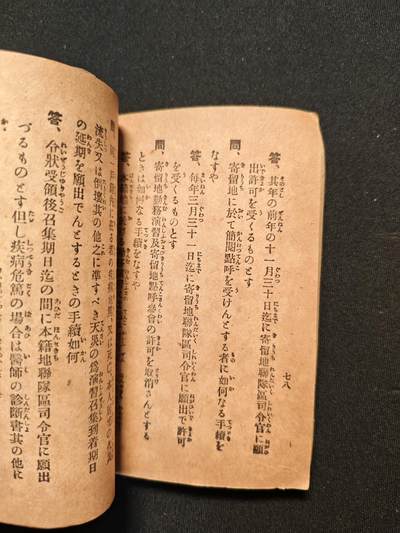 七八
答、其年の前年の十一月三十日迄に寄留地聯隊區司令官に願
出許可を受くるものとす
問、寄留地に於て簡閲點呼を受けんとする者に如何なる手續を
なすや
答、每年三月三十一日迄に寄留地聯隊區司令官に願出で許可
を受くるものとす
問、寄留地勤務演習及寄留地點呼參會の許可を取消さんとする
ときは如何なる手續をなすや
流失又は倒壞其の他之に準すべき天災の爲演習召集到着期日
の延期を願出でんとするときの手續如何
答、令狀受領後召集期日迄の間に本籍地聯隊區司令官に願出
づるものとす但し疾病危篤の場合は醫師の診斷書其の他に